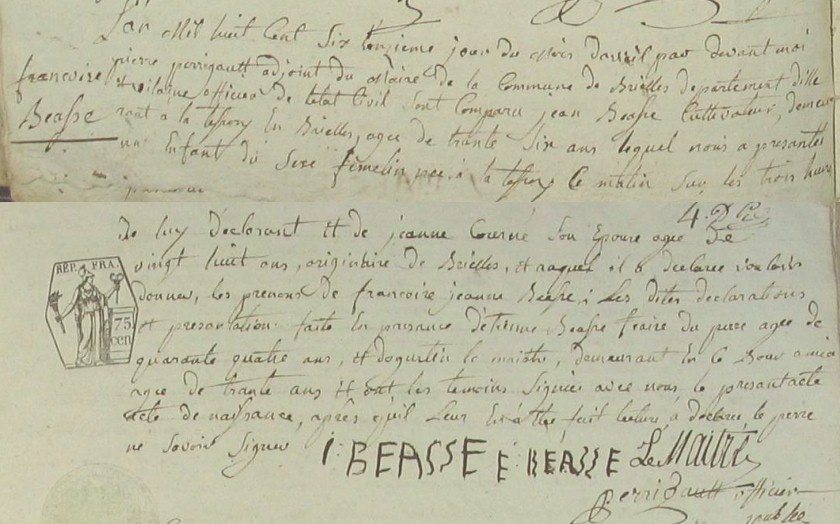 L'an Mil huit Cent Six onzieme jour du Mois davril par devant moi
pierre perrigault adjoint du Maire de la Commune de Brielles departement dille
et vilaine officier de letat Civil sont Comparu jean Beasse Cultivateur, demeu
francoise
Beasse
rant a la en Brielles, age de trante Six ans lequel nous a presanter
un Enfant du Sexe femelin, nee, a la Ce matin Sur les trois heures
4.
De luy Declarant et de jeanne Son Epouse agee De
vingt huit ans, originaire de Brielles, et auquel il a declaree vouloir
REP. FRA.
75
cen
donner, les prenoms De francoise jeanne Beasse; Les dites declarations
et presantation faite En presance d'Etienne Beasse fraire du pere agee de
quarante quatre ans, et le maistre, demeurant En ce Bour amie
agee de trante ans et ont les temoins Signée avec nous le presantacte
acte de naissance, après quil Leur En a ette fait lecture a declaree le perre
ne Savoir Signer
I: BEASSE E: BEASSE Le Maitre
Perrigault officier